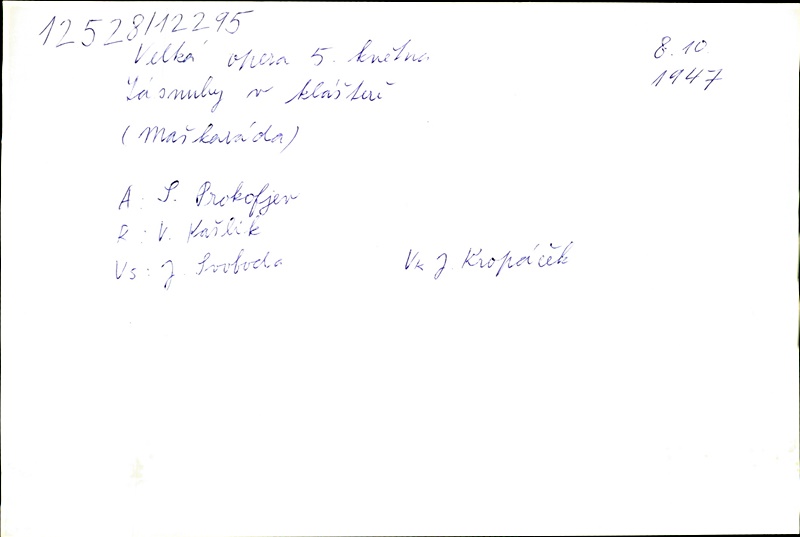 12528/12295
Velká opera 5. května
8.10
1947
Zásnuby v klášteře
(Maškaráda)
A: S. Prokofjev
R: V. Kašlík
Vs: J. Svoboda
Vk J. Kropáček